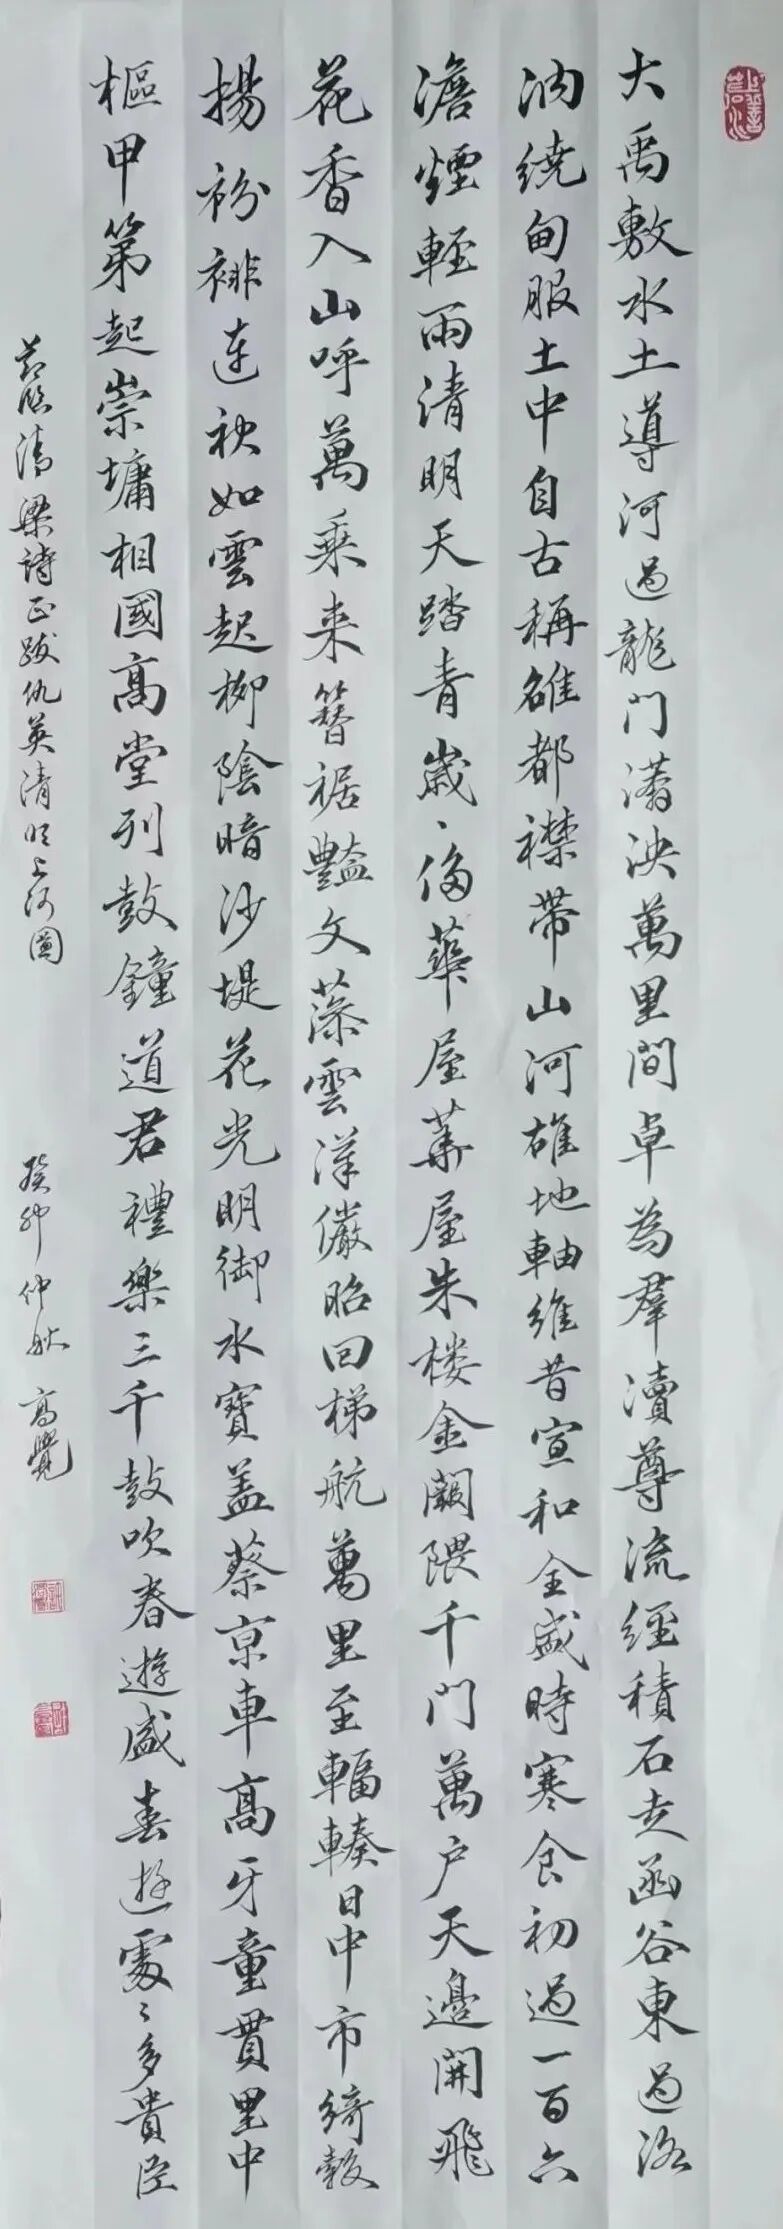 大禹敷水土導河過龍門滿泱萬里間卓為群瀆尊流經積石走函谷東過洛
汭繞甸服土中自古稱雒都襟帶山河雄地軸維昔宣和全盛時寒食初過一百六
澹煙輕雨清明天踏青歲〻侈華屋華屋朱楼金闕隈千門萬户天邊開飛
花香入山呼萬乘来簪裾豔文藻雲漢儼昭回梯航萬里至輻輳日中市綺縠
揚衯裶連袂如雲起柳陰暗沙堤花光明御水寶盖蔡京車高牙童貫里中
樞甲第起崇墉相國高堂列鼓鐘道君禮樂三千鼓吹春遊盛春遊處〻多貴臣
節臨清梁詩正跋仇英清明上河圖
癸卯仲秋高覺